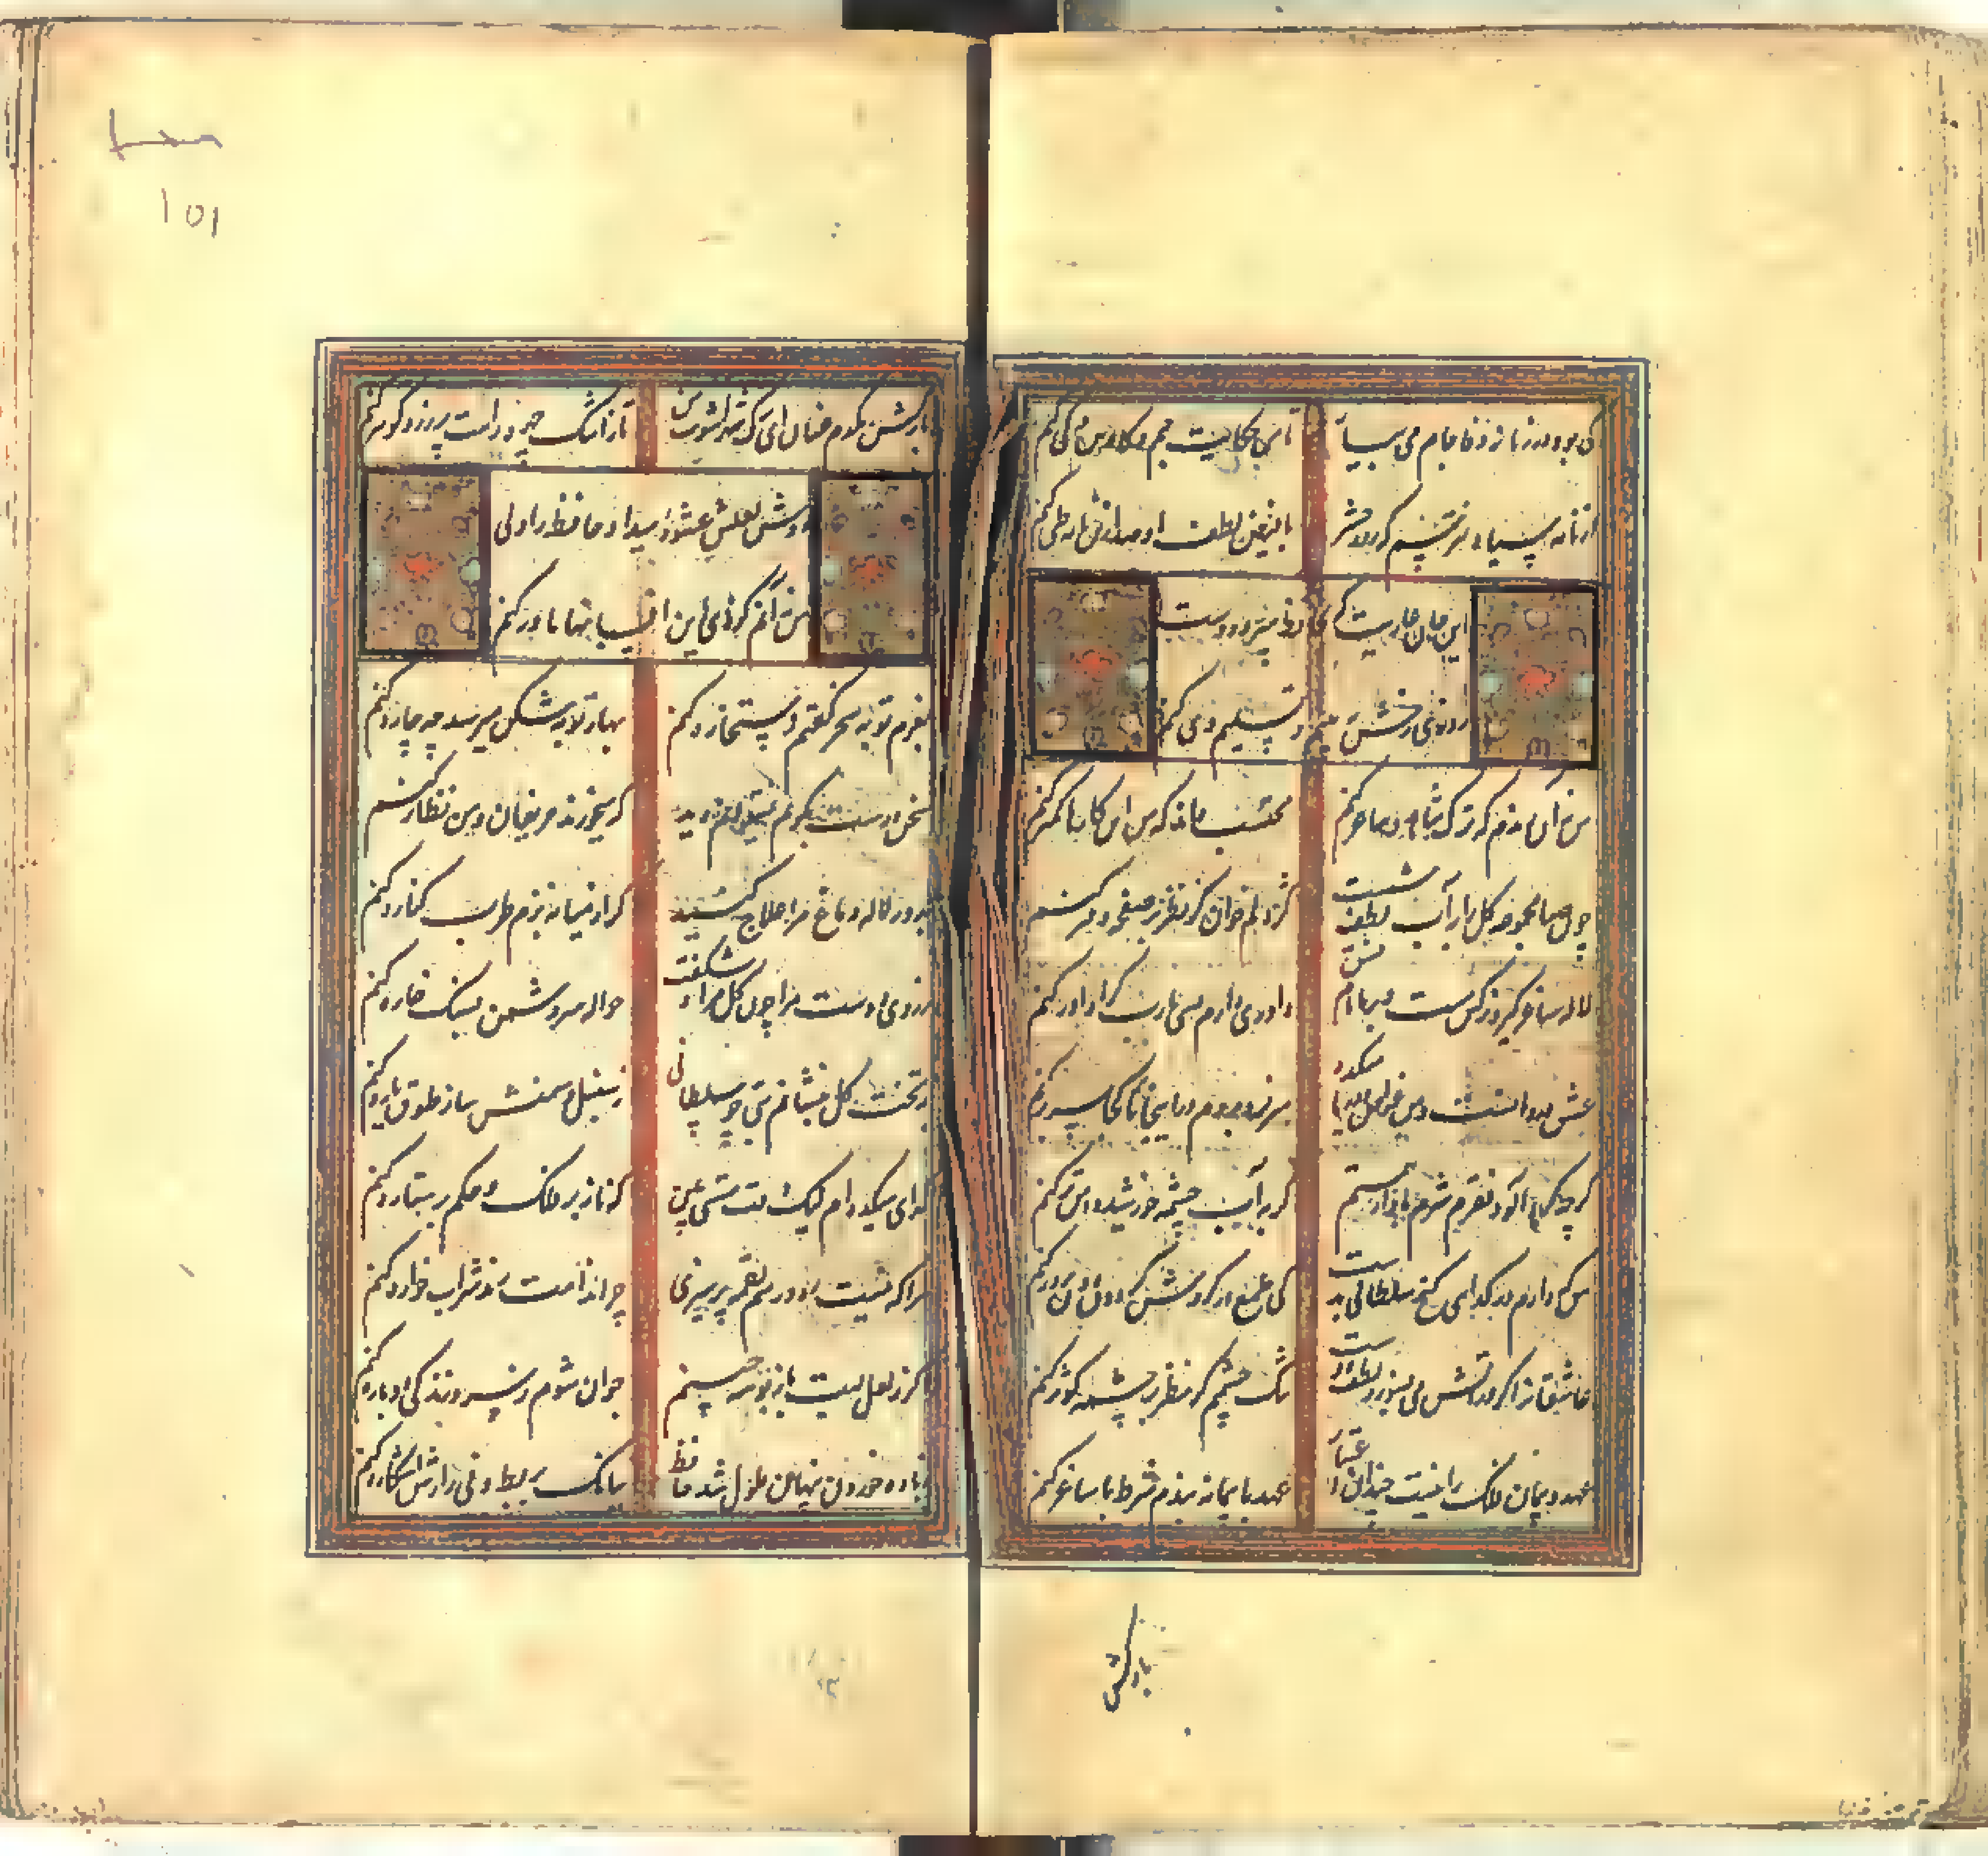 کی بود در زمانه وفا جام می بیا
تا من حکایت جم و کاوس کی کنم
از نامه سیاه نترسم که روز حشر
با فیض لطف او صد ازین نامه طی کنم
این جان عاریت که بحافظ سپرد دوست
روزی رخش ببینم و تسلیم وی کنم
من نه آن رندم که ترک شاهد و ساغر کنم
محتسب داند که من این کارها کمتر کنم
چون صبا مجموعه گل را بآب لطف شست
کژدلم خوان گر نظر بر صفحه دفتر کنم
لاله ساغر گیر و نرگس مست و بر ما نام فسق
داوری دارم بسی یارب کرا داور کنم
عشق دردانست و من غواص و دریا میکده
سر فرو بردم در اینجا تا کجا سر بر کنم
گرچه گردآلود فقرم شرم باد از همتم
گر به آب چشمه خورشید دامن تر کنم
من که دارم در گدایی گنج سلطانی بدست
کی طمع در گردش گردون دون پرور کنم
عاشقانرا گر در آتش می پسندد لطف دوست
تنگ چشمم گر نظر بر چشمه کوثر کنم
عهد و پیمان فلک را نیست چندان اعتبار
عهد با پیمانه بندم شرط با ساغر کنم
بازکش
۱۵۱
بازکش یکدم عنان ای ترک شهرآشوب من
تا ز اشک چهره راهت پر زر و گوهر کنم
دوش لعلش عشوۀ میداد حافظ را ولی
من نه آنم کز وی این افسانها باور کنم
بعزم توبه سحر گفتم استخاره کنم
بهار توبه شکن میرسد چه چاره کنم
سخن درست بگویم نمیتوانم دید
که میخورند حریفان و من نظاره کنم
بدور لاله دماغ مرا علاج کنید
گر از میانه بزم طرب کناره کنم
ز روی دوست مرا چون گل مراد شکفت
حواله سر دشمن بسنک خاره کنم
بتخت گل بنشانم بتی چو سلطانی
ز سنبل و سمنش ساز طوق و یاره کنم
گدای میکده ام لیک وقت مستی بین
که ناز بر فلک و حکم بر ستاره کنم
مرا که نیست ره و رسم لقمه پرهیزی
چرا مذمت رند شرابخواره کنم
گر ز لعل لبت باز بوسه چینم
جوان شوم ز سر و زندگی دوباره کنم
ز باده خوردن پنهان ملول شد حافظ
ببانک بربط و نی رازش آشکاره کنم